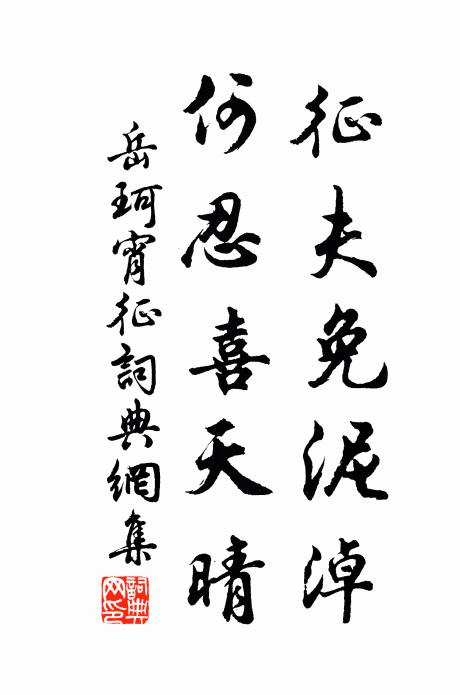 征夫免泥淖
何忍喜天晴
岳珂宵征詞典網集
詞典網印